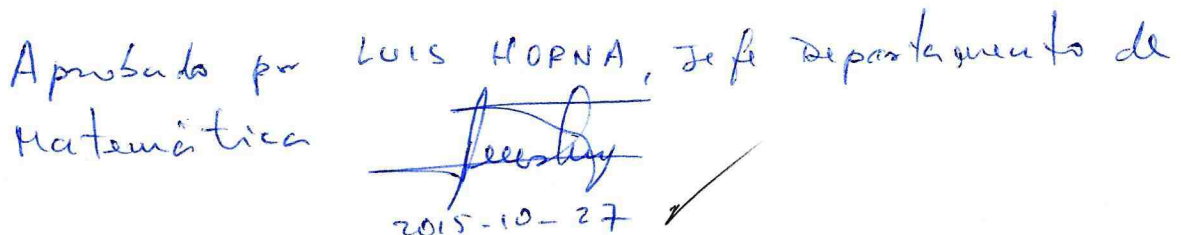 Aprobado por LUIS HORNA, Jefe Departamento de
Matemática
2015-10-27